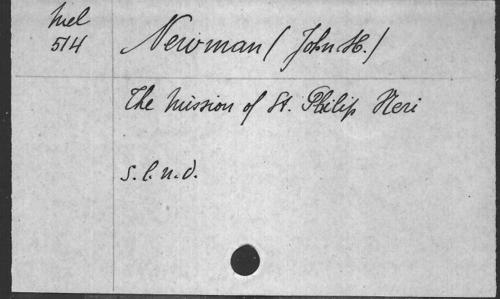 Mel
514
Newman (John H.)
The Mission of St. Philip Neri
s.l.n.d.